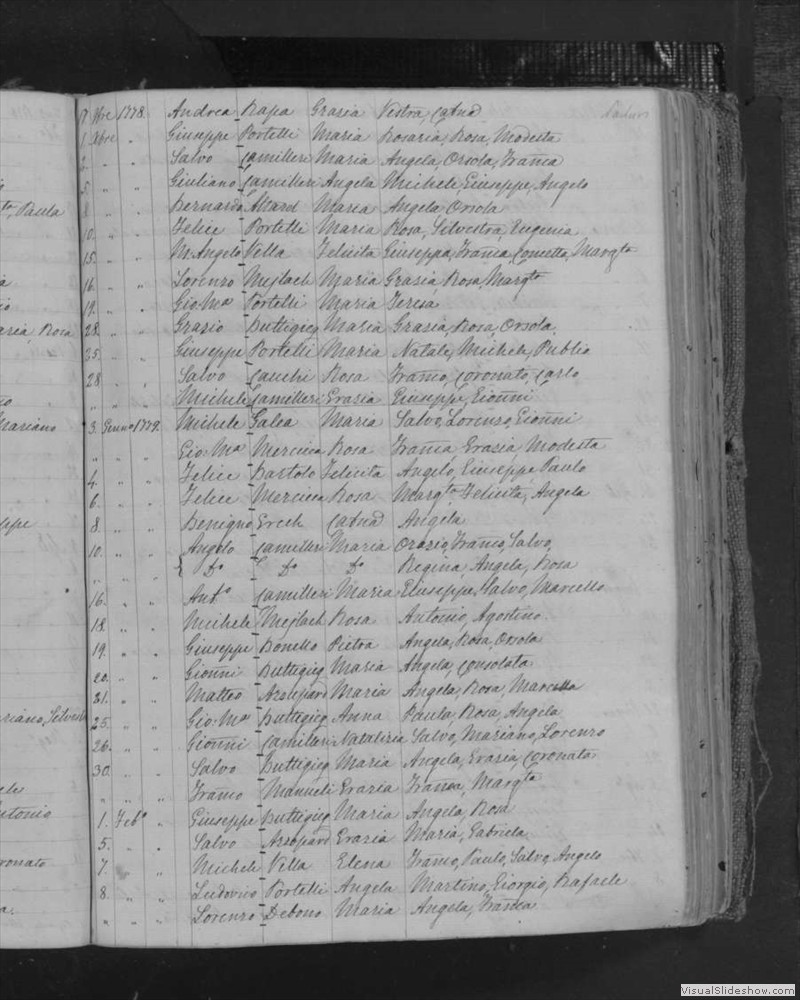 Paula
aria, Rosa
Mariano
ppe
riano, Silvest
ele
ntonio
ronato
a.
7 9bre 1778. Andrea Rapa Grazia Vestra, Catna
1 Xbre " Giuseppe Portelli Maria Rosaria, Rosa, Modesta
2. " " Salvo Camilleri Maria Angela, Orsola, Franca
5. " " Giuliano Camilleri Angela Michele, Giuseppe, Angelo
8 " " Bernardo Attard Maria Angela Orsola
10. " " Felice Portelli Maria Rosa, Silvestra, Eugenia
15. " " M. Angelo Vella Felicita Giuseppa, Franca, Margta
16. " " Lorenzo Mejlach Maria Grazia Rosa, Margta
19. " " Gio: Ma Portelli Maria Teresa
28. " " Grazio Buttigieg Maria Grazia, Rosa, Orsola,
25. " " Giuseppe Portelli Maria Natale, Michele, Publio
28 " " Salvo Cauchi Rosa Franco, Coronato, Carlo
" " " Michele Camilleri Grazia Giuseppe, Gionni
3. Genno 1779. Michele Galea Maria Salvo, Lorenzo, Gionni
" " " Gio: Ma Mercieca Rosa Franca, Grazia, Modesta
4. " " Felice Bartolo Felicita Angelo, Giuseppe Paulo
6. " " Felice Mercieca Rosa Margta Felicita, Angela
8. " " Benigno Grech Catna Angela
10. " " Angelo Camilleri Maria Orazio, Franco, Salvo,
" " " { do do do Regina, Angela, Rosa
16. " " Anto Camilleri Maria Giuseppe, Salvo, Marcello
18. " " Michele Mejlach Rosa Antonio, Agostino.
19. " " Giuseppe Bonello Pietra Angela, Rosa, Orsola
20. " " Gionni Buttigieg Maria Angela, Consolata
21. " " Matteo Azzopard Maria Angela, Rosa, Marcella
25. " " Gio: Ma Buttigieg Anna Paula, Rosa, Angela
26. " " Gionni Camilleri Natalizia Salvo, Mariano, Lorenzo
30. " " Salvo Buttigieg Maria Angela, Grazia, Coronata
" " " Franco Manueli Grazia Franca, Margta
1. Febo " Giuseppe Buttigieg Maria Angela, Rosa
5. " " Salvo Azzopard Grazia Maria, Gabriela
7. " " Michele Vella Elena Franco, Paulo, Salvo, Angelo
8. " " Ludovico Portelli Angela Martino, Giorgio, Rafaele
" " " Lorenzo Debono Maria Angela, Franca
VisualSlideshow.com